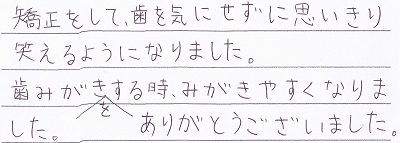 矯正をして、歯を気にせずに思いきり
笑えるようになりました。
歯みがきをする時、みがきやすくなりま
した。　ありがとうございました。